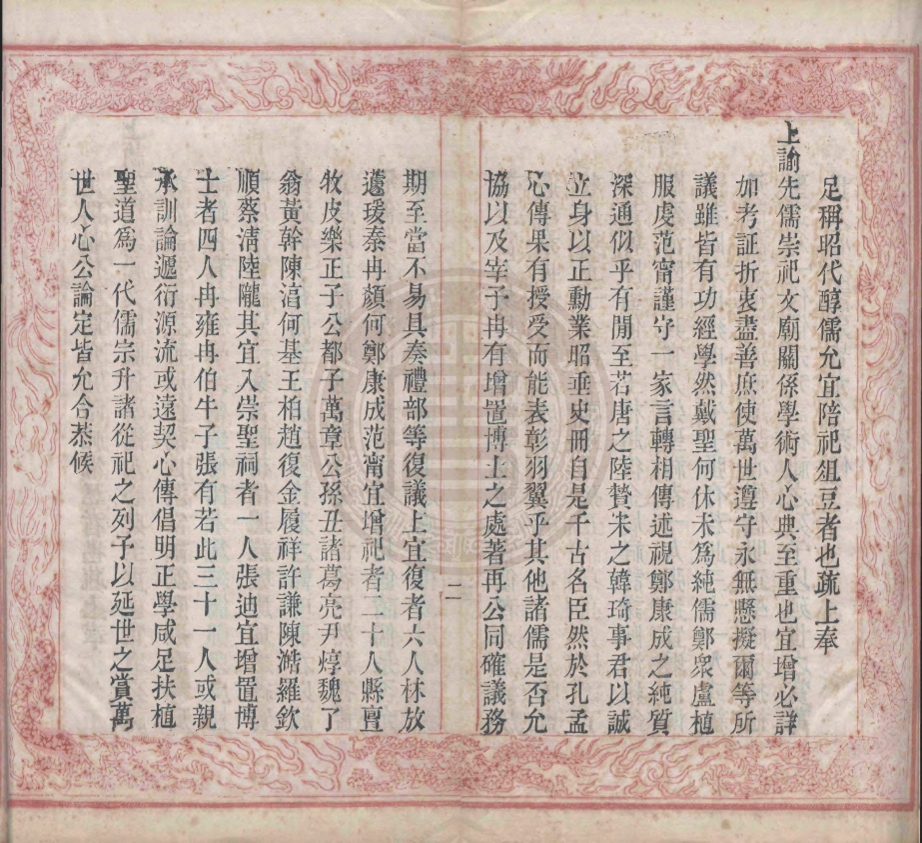 足稱昭代醇儒允宜陪祀俎豆者也疏上奉
上諭先儒崇祀文廟關係學術人心典至重也宜增必詳
加考証折衷盡善庶使萬世遵守永無懸擬爾等所
議雖皆有功經學然戴聖何休未為純儒鄭衆盧植
服虔范甯謹守一家言轉相傳述視鄭康成之純質
深通似乎有閒至若唐之陸贄宋之韓琦事君以誠
立身以正勳業昭垂史冊自是千古名臣然於孔孟
心傳果有授受而能表彰羽翼乎其他諸儒是否允
協以及宰子冉有增置博士之處著再公同確議務
二
期至當不易具奏禮部等復議上宜復者六人林放
蘧瑗秦冉顏何鄭康成范甯宜增祀者二十人縣亶
牧皮樂正子公都子萬章公孫丑諸葛亮尹焞魏了
翁黃幹陳淳何基王柏趙復金履祥許謙陳澔羅欽
順蔡清陸隴其宜入崇聖祠者一人張迪宜增置博
士者四人冉雍冉伯牛子張有若此三十一人或親
承訓論遞衍源流或遠契心傳倡明正學咸足扶植
聖道為一代儒宗升諸從祀之列予以延世之賞萬
世人心公論定皆允合恭候